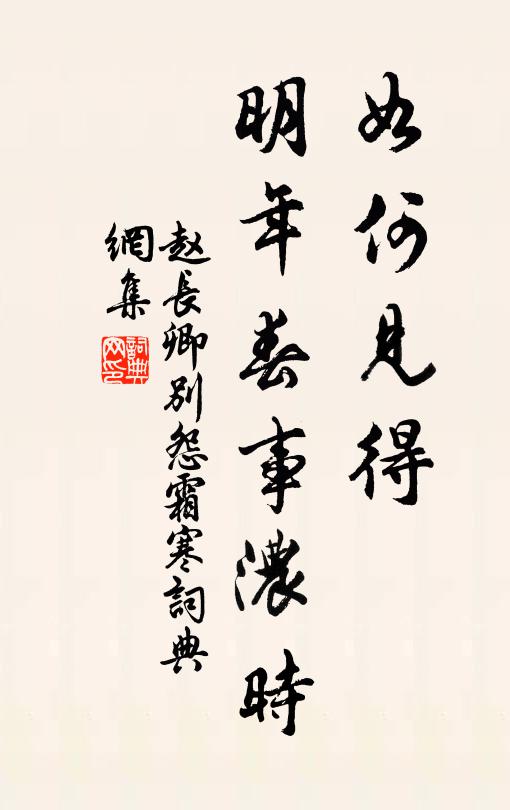 如何見得
明年春事濃時
赵長卿別怨霜寒詞典
網集
詞典
网印